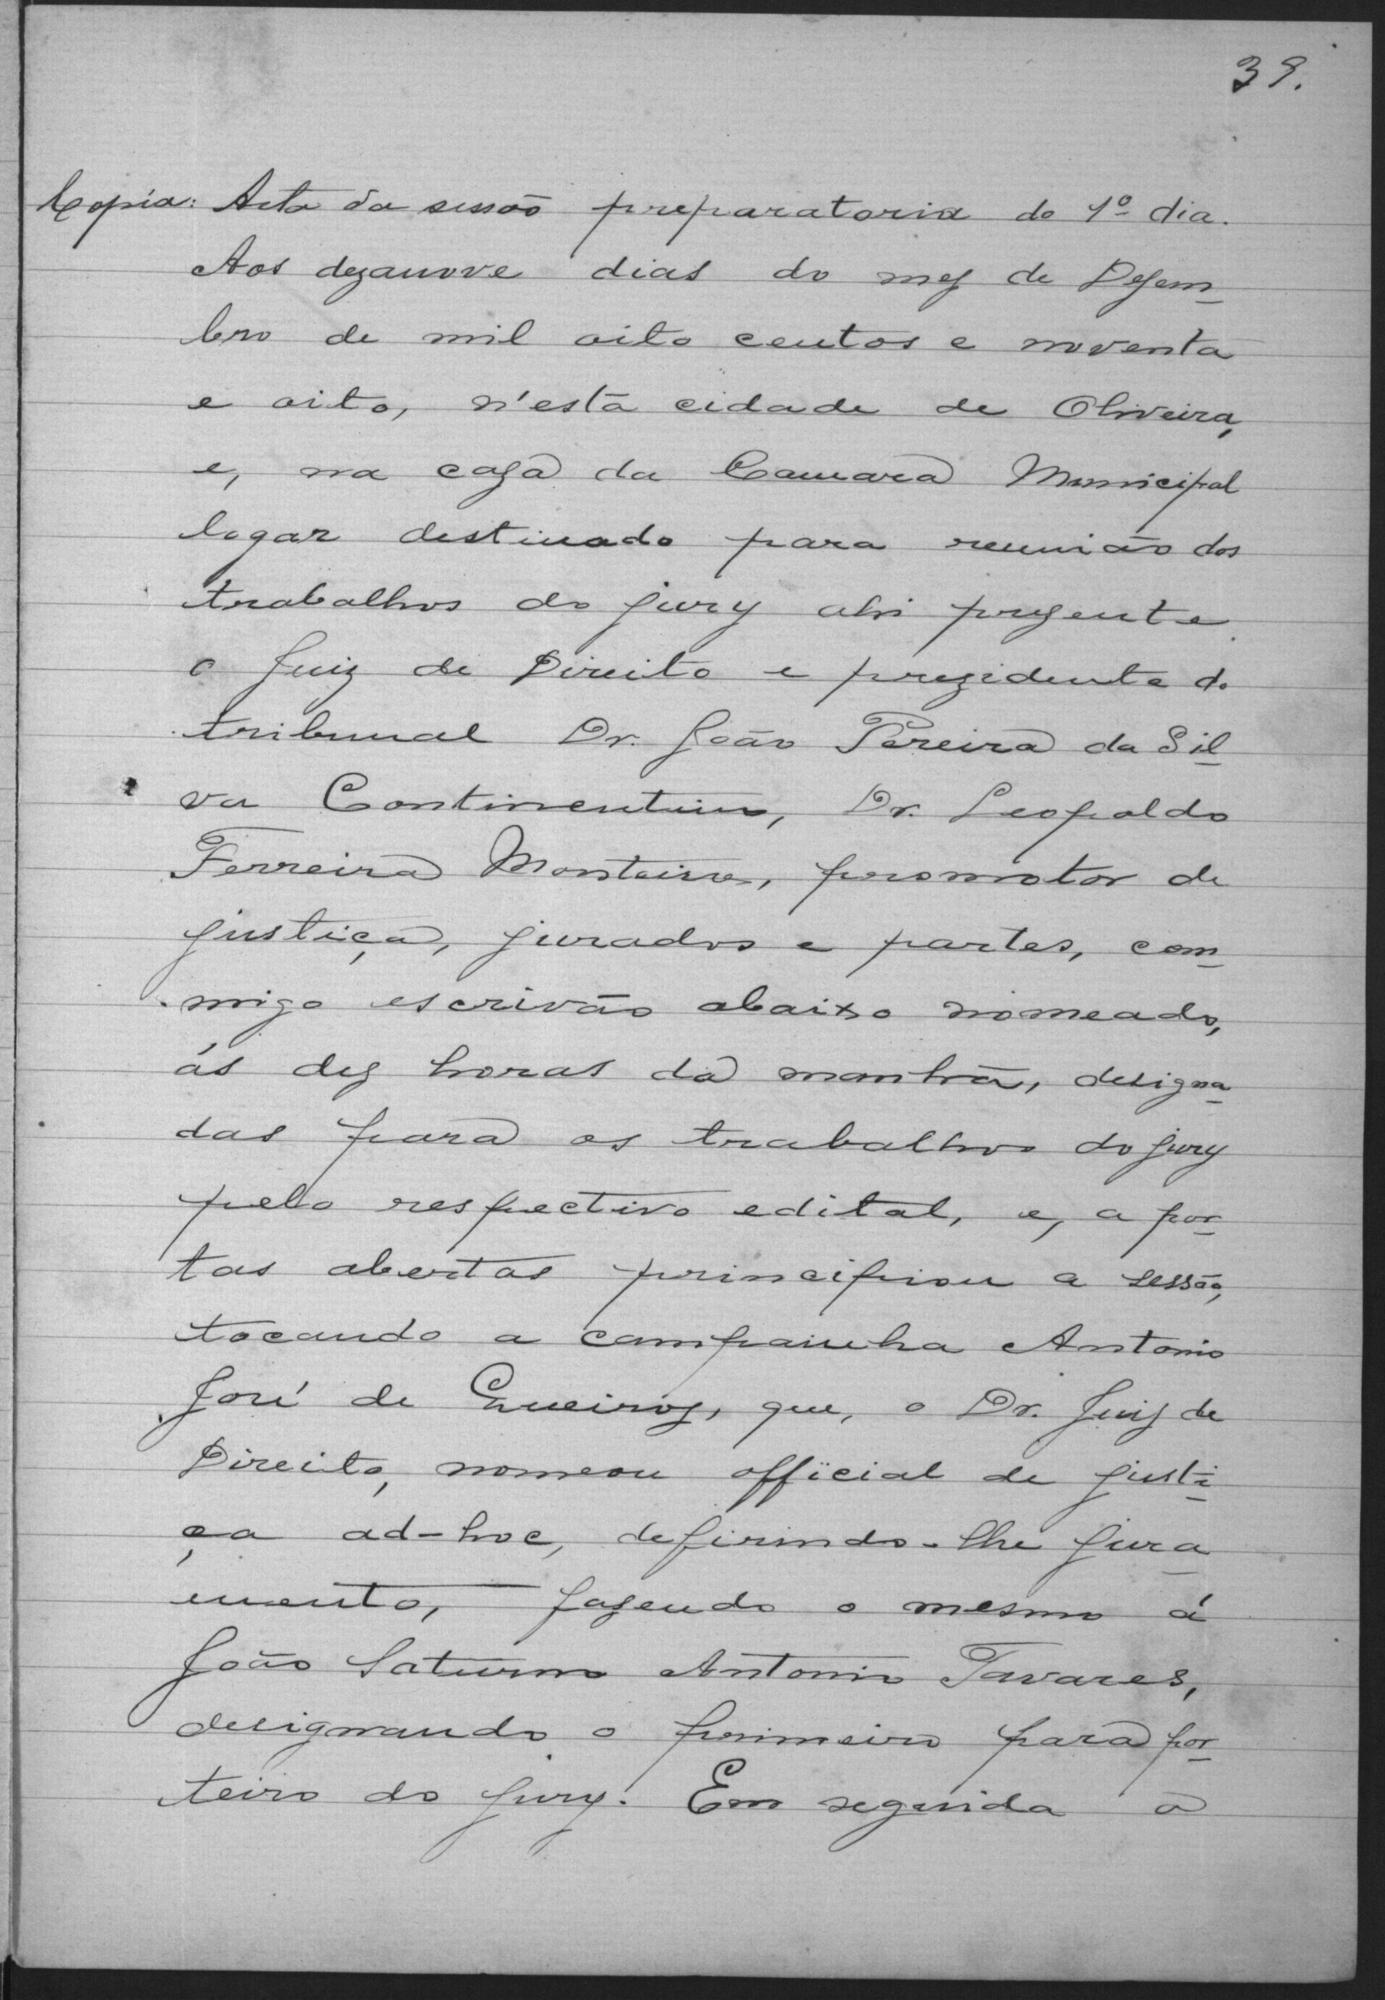 39.
Copia: Acta da sessão preparatoria do 1º dia.
Aos dezanove dias do mez de Dezem-
bro de mil oito centos e noventa
e oito, n'esta cidade de Oliveira,
e, na caza da Camara Municipal
logar destinado para reunião dos
trabalhos do jury ahi prezente
o Juiz de Direito e prezidente do
tribunal Dr. João Pereira da Sil-
va Continentino, Dr. Leopoldo
Ferreira Monteiro, promotor de
justiça, jurados e partes, com-
migo escrivão abaixo nomeado,
ás dez horas da manhã, designa-
das para os trabalhos do jury
pelo respectivo edital, e, a por-
tas abertas principiou a sessão,
tocando a campainha Antonio
José de Queiroz, que, o Dr. Juiz de
Direito, nomeou official de justi-
ça ad-hoc, defirindo-lhe jura-
mento, fazendo o mesmo á
João Saturno Antonio Tavares,
designando o primeiro para por-
teiro do jury. Em seguida o